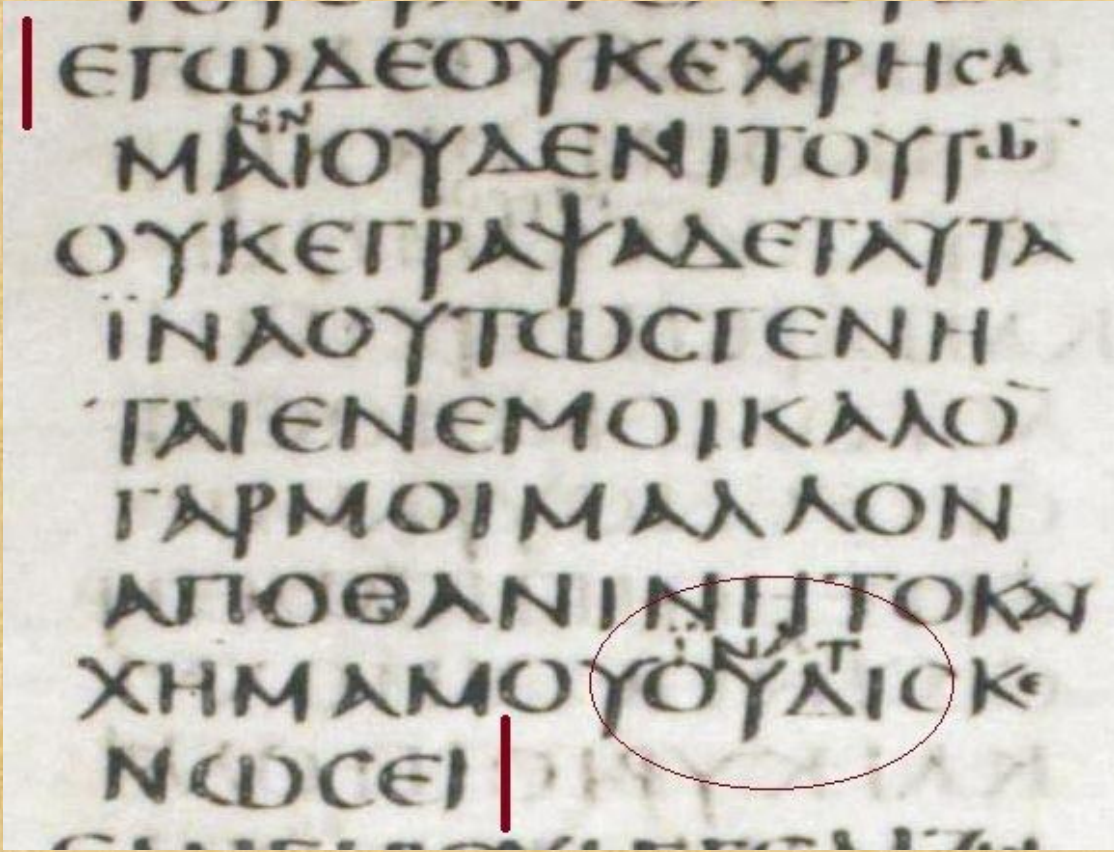 ΕΓΩΔΕΟΥΚΕΧΡΗϹΑ
ΗΝ
ΜΑΙΟΥΔΕΝΙΤΟΥΤΩ̅
ΟΥΚΕΓΡΑΨΑΔΕΤΑΥΤΑ
ΪΝΑΟΥΤΩϹΓΕΝΗ
ΤΑΙΕΝΕΜΟΙΚΑΛΟ̅
ΓΑΡΜΟΙΜΑΛΛΟΝ
ΑΠΟΘΑΝΙΝΗΤΟΚΑΥ
ΪΝΑ Τ
ΧΗΜΑΜΟΥΟΥΔΙϹΚΕ
ΝΩϹΕΙ